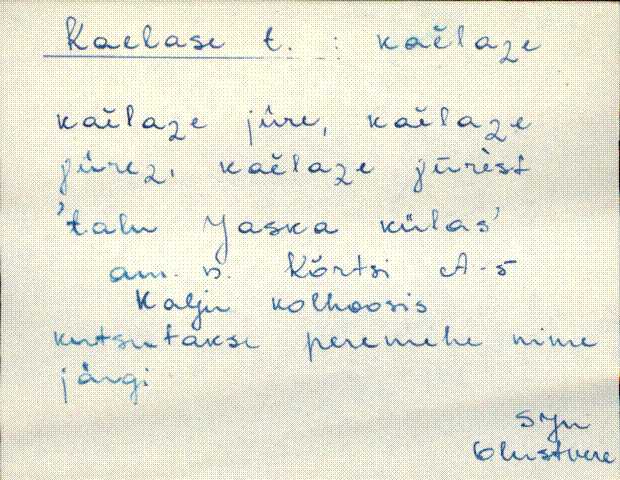 Kaelase t. : kaĕlaze
kaĕlaze jüre, kaĕlaze
jürez, kaĕlaze jürèst
'talu Jaska külas'
am. n. Kõrtsi A-5
Kalju kolhoosis
kutsutakse peremehe nime
järgi
SJn
Olustvere